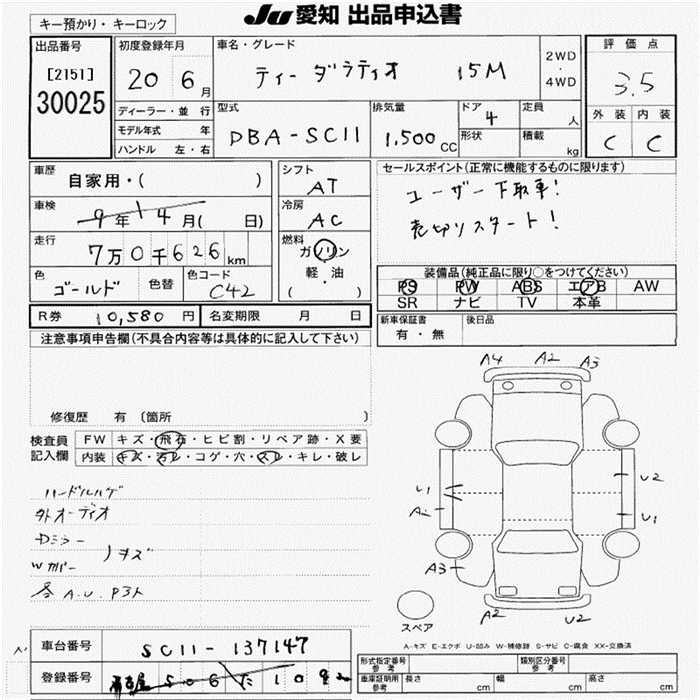 キー預かり・キーロック
JU愛知 出品申込書
出品番号
[2151]
30025
初度登録年月
20 6月
ディーラー・並行
モデル年式 年
ハンドル 左・右
車名・グレード
ティーダラティオ 15M
2WD
・
4WD
型式
DBA-SC11
排気量
1,500cc
ドア
4
定員
人
形状
積載
kg
評価点
3.5
外装 内装
C C
車歴
自家用・( )
車検
9年14月( 日)
走行
7万0千626km
色
ゴールド
色替
色コード
C42
シフト
AT
冷房
AC
燃料
ガソリン
軽・油
( )
セールスポイント(正常に機能するものに限ります)
ユーザー下取車!
売切りスタート!
装備品(純正品に限り○をつけてください)
PS PW ABS エアB AW
SR ナビ TV 本革
R券 10,580円 名変期限 月 日
新車保証書
有・無
後日品
注意事項申告欄(不具合内容等は具体的に記入して下さい)
修復歴 有 〔箇所 〕
検査員
記入欄
FW キズ・飛石・ヒビ割・リペア跡・X要
内装 キズ・汚レ・コゲ・穴・スレ・キレ・破レ
ハードルハゲ
外オーディオ
Dミラー
Wカバー
ノキズ
各A.U.P3ト
A4 A2 A3
U1
A2
A3
U2
U1
A2 U2
スペア
A-キズ E-エクボ U-凹み W-補修跡 S-サビ C-腐食 XX-交換済
車台番号 SC11-137147
登録番号
形式指定番号
参考
類別区分番号
参考
車庫証明用
参考
長さ cm 幅 cm 高さ cm